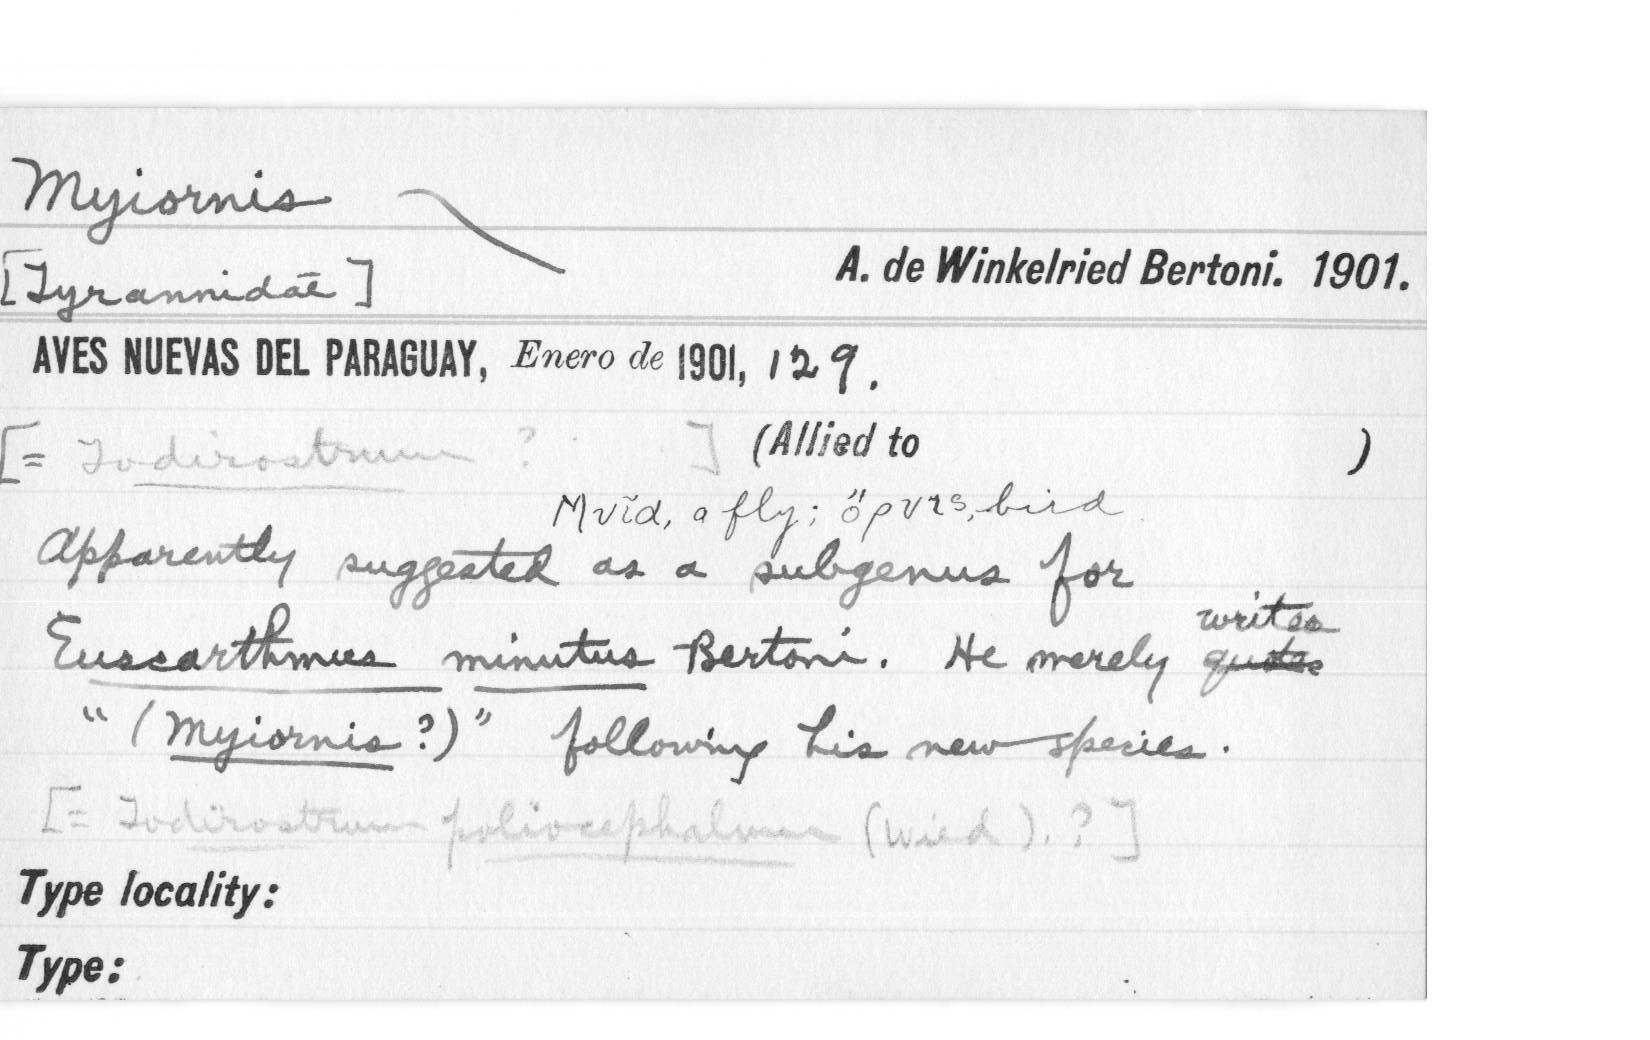 Myiornis
[Tyrannidae]
A. de Winkelried Bertoni. 1901.
AVES NUEVAS DEL PARAGUAY, Enero de 1901, 129.
[= Todirostrum ? ] (Allied to )
Μυῖα, a fly; ὄρνις, bird
Apparently suggested as a subgenus for
writes
Euscarthmus minutus Bertoni. He merely quotes
"(Myiornis?)" following his new species.
[= Todirostrum poliocephalum (Wied). ?]
Type locality:
Type: